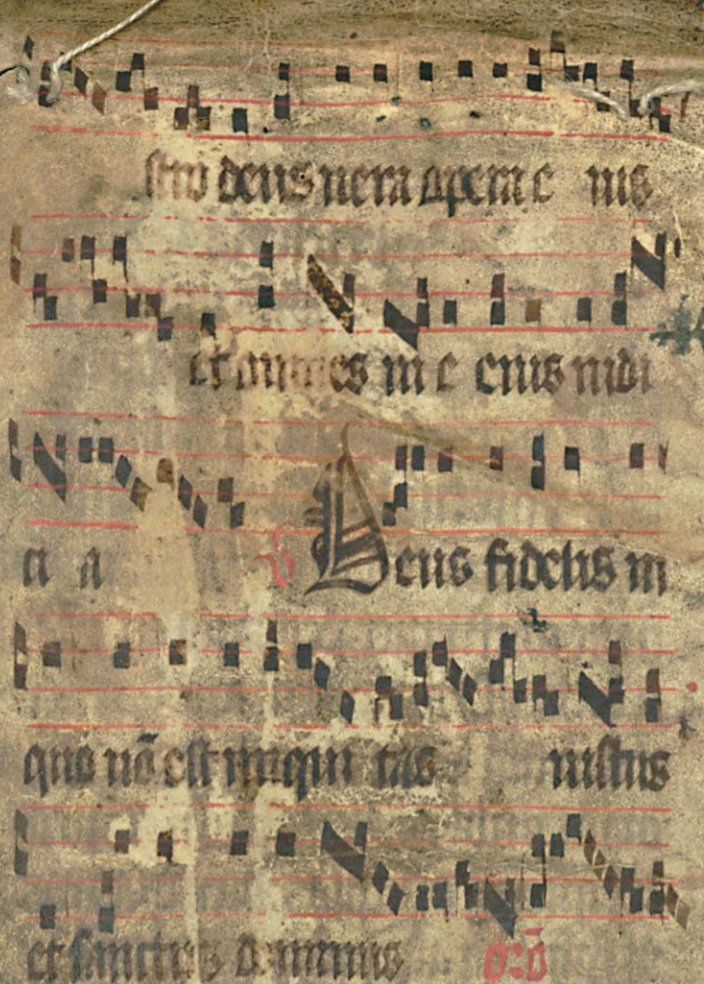 stro deus vera opera e ius
et omnes vie eius iudi
ci a ℟ Deus fidelis in
quo nō est iniqui tas iustus
et sanctus dominus oro